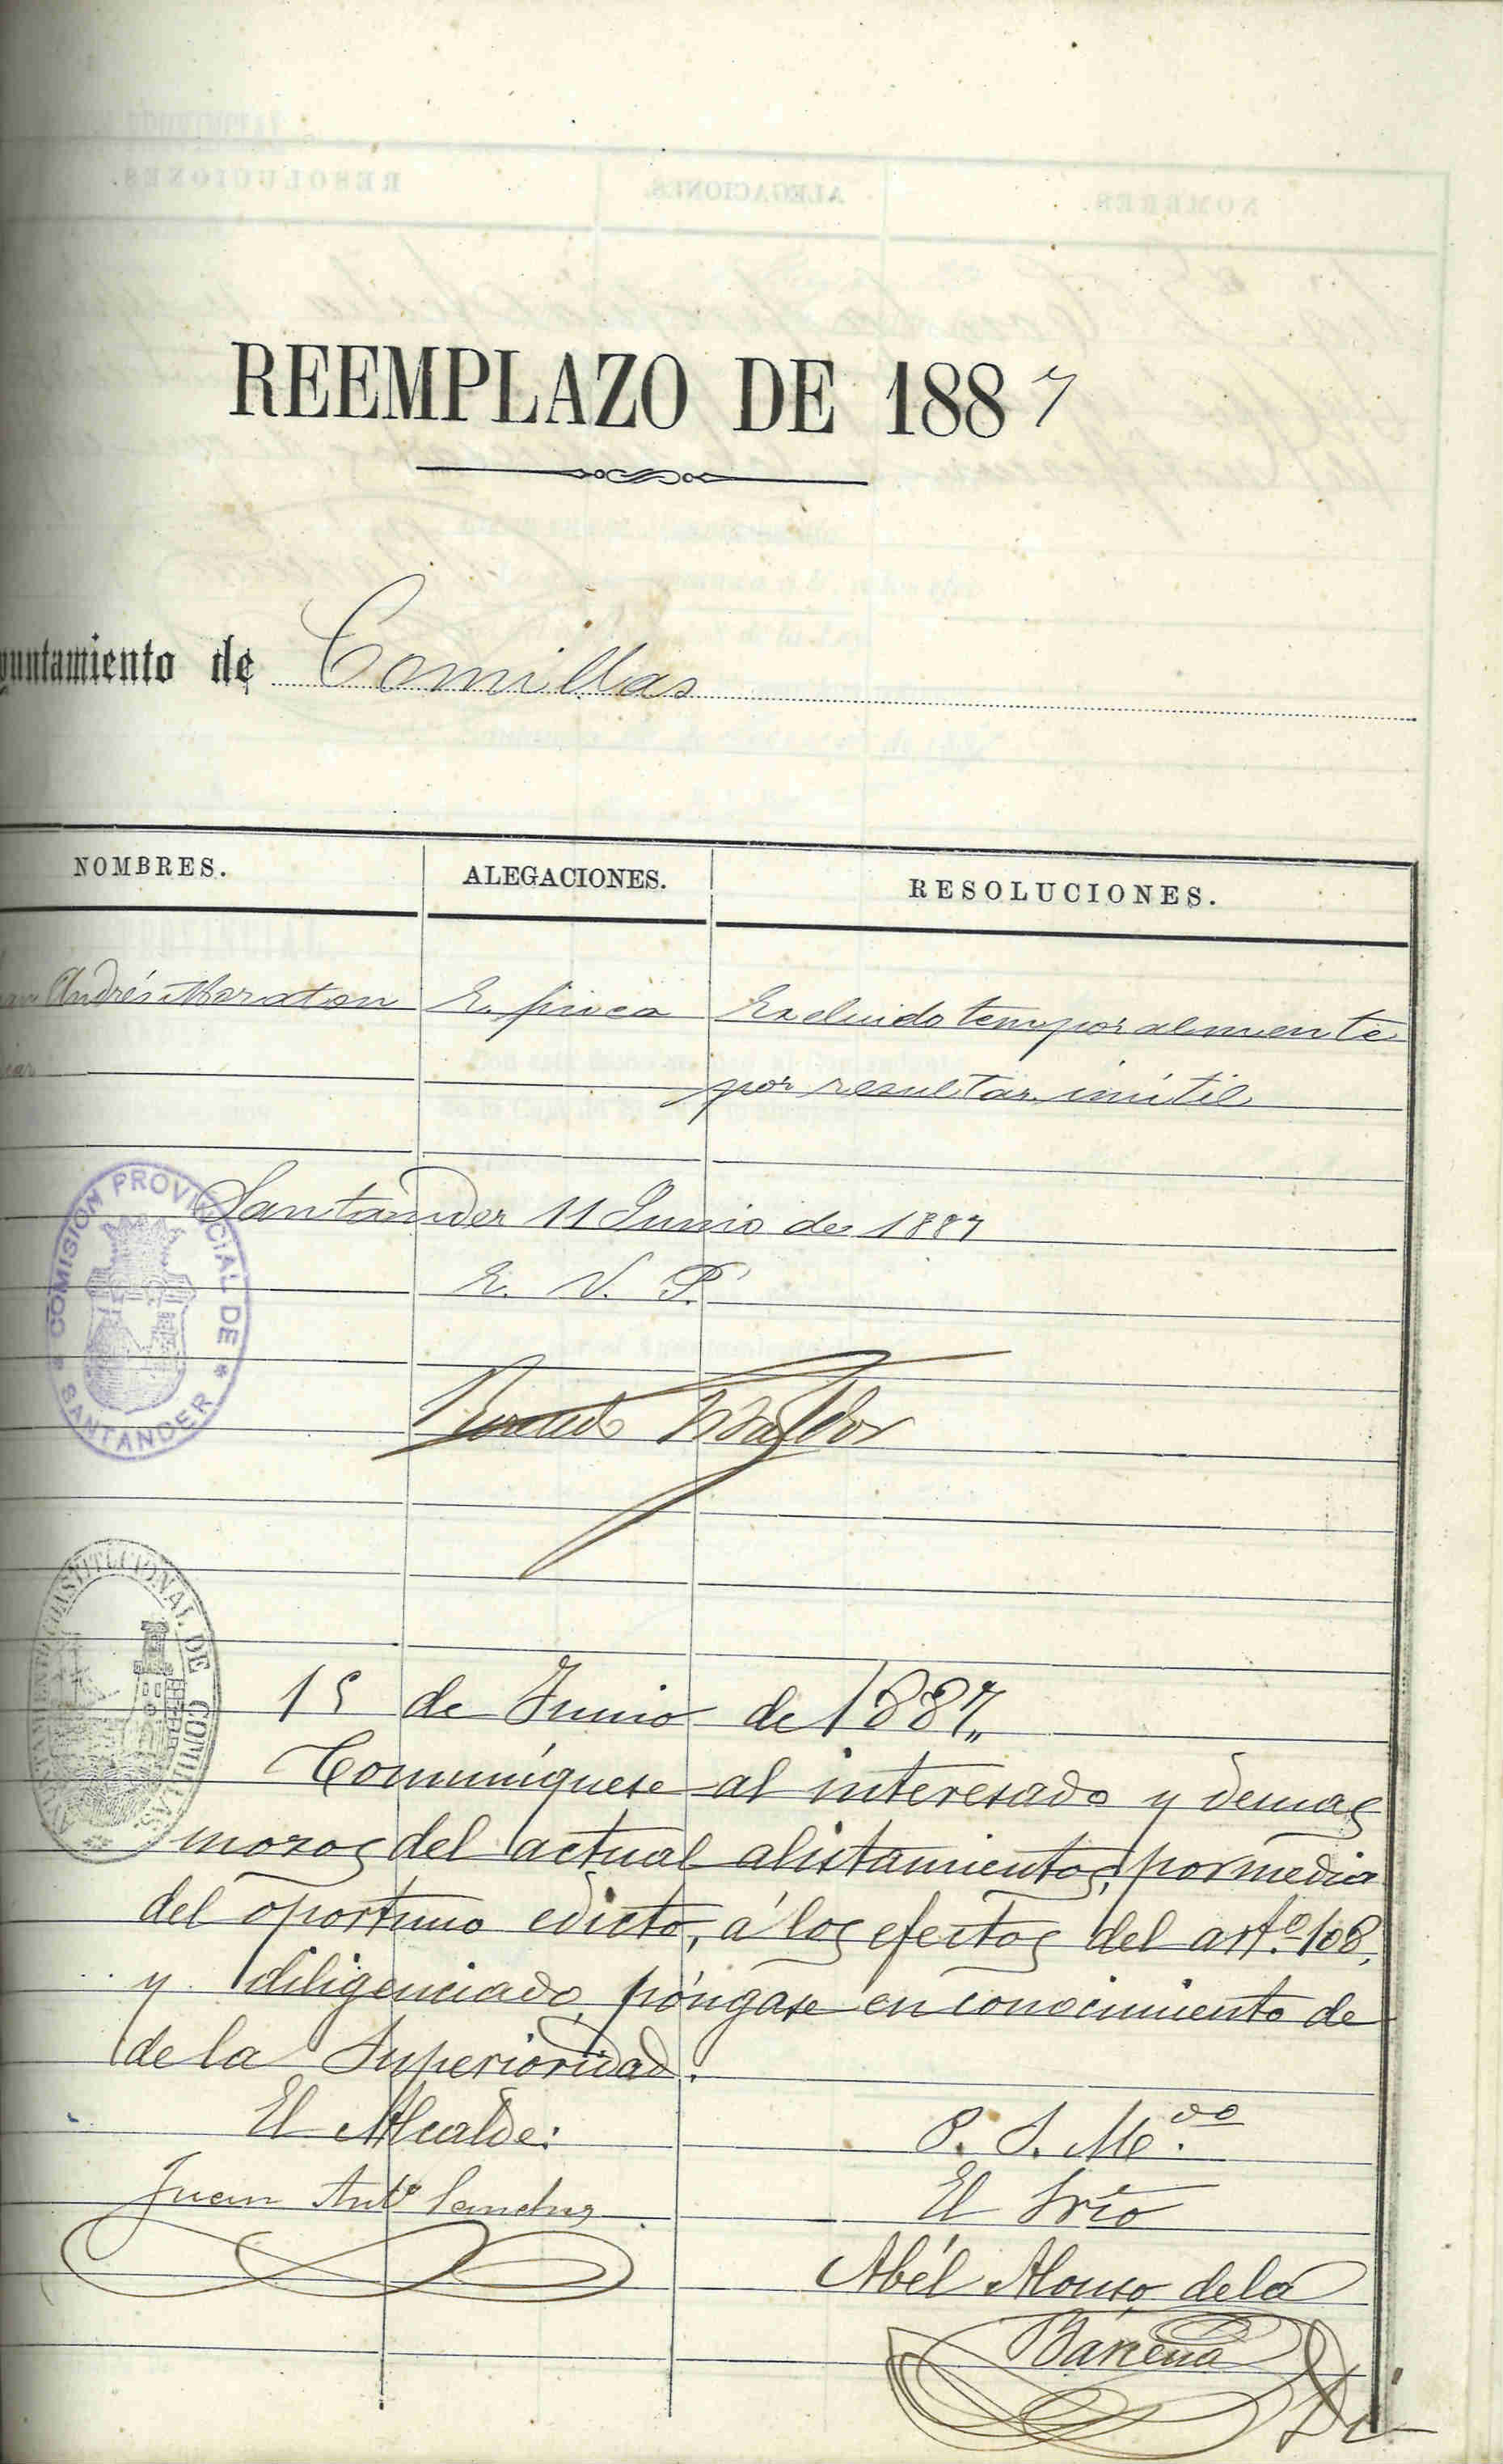 REEMPLAZO DE 1887
yuntamiento de Comillas
NOMBRES. ALEGACIONES. RESOLUCIONES.
Andrés Maraton E. física Excluido temporalmente
por resultar inútil
COMISION PROVINCIAL DE SANTANDER
Santander 11 Junio de 1887
E. V. P.
AYUNTAMIENTO CONSTITUCIONAL DE COMILLAS
15 de Junio de 1887,,
Comuníquese al interesado y demas
mozos del actual alistamiento, por medio
del oportuno edicto, á los efectos del artº. 108,
y diligenciado, póngase en conocimiento de
de la Superioridad.
El Alcalde: P. S. Mdo.
Juan Antº Sanchez El Srio
Abél Alonso de la
Bárcena